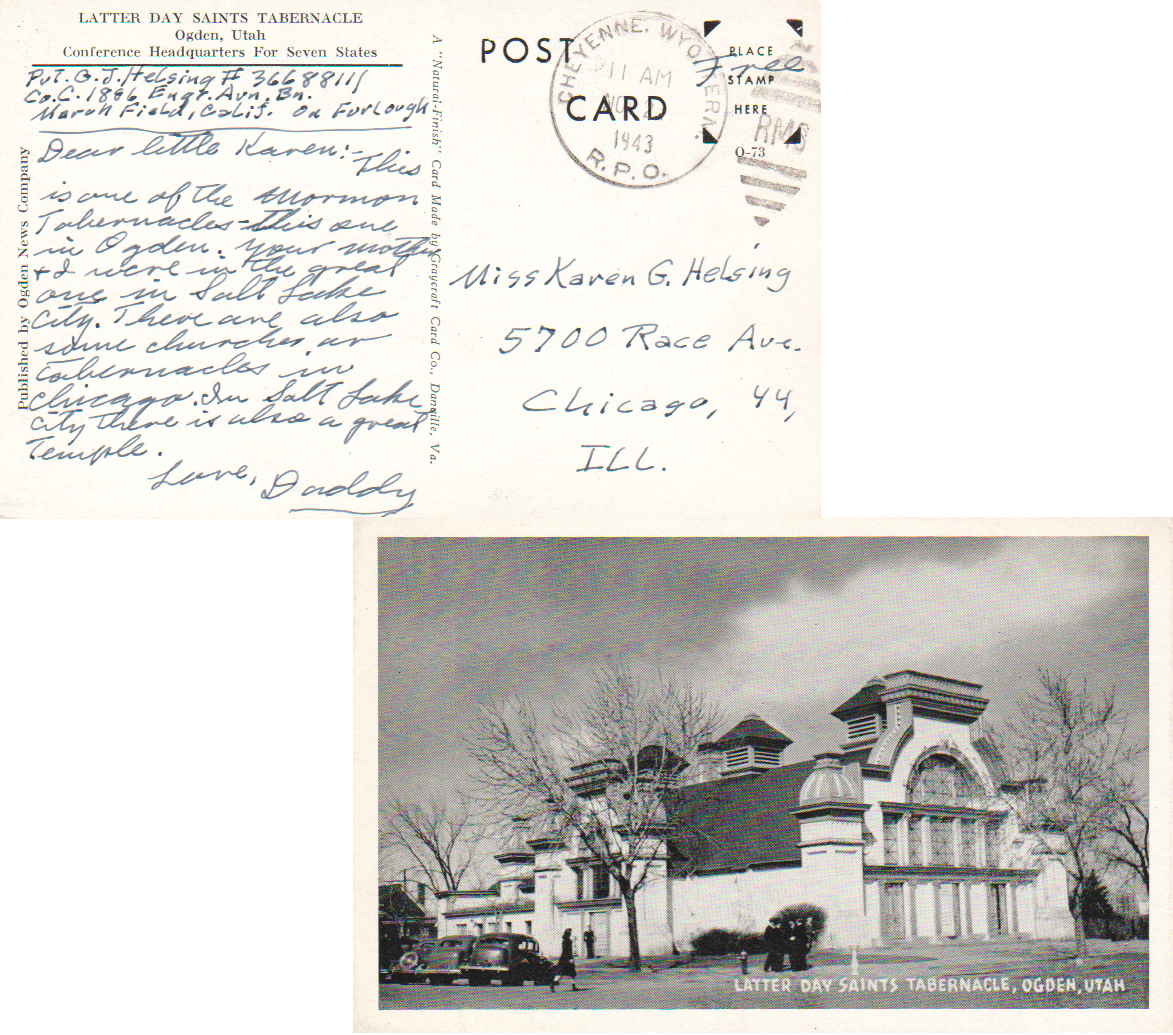 LATTER DAY SAINTS TABERNACLE
Ogden, Utah
Conference Headquarters For Seven States
Pvt. G. J. Helsing # 36688111
Co. C. 1886 Engr. Avn. Bn.
March Field, Calif. On Furlough
Dear little Karen:- This
is one of the Mormon
Tabernacles - this one
in Ogden. Your mother
& I were in the great
one in Salt Lake
City. There are also
some churches or
tabernacles in
Chicago. In Salt Lake
City there is also a great
Temple.
Love, Daddy
Published by Ogden News Company
A "Natural-Finish" Card Made by Graycraft Card Co., Danville, Va.
POST
CARD
CHEYENNE, WYO.
11 AM
1943
R.P.O.
RMS
PLACE
Free
STAMP
HERE
O-73
Miss Karen G. Helsing
5700 Race Ave.
Chicago, 44,
ILL.
LATTER DAY SAINTS TABERNACLE, OGDEN, UTAH